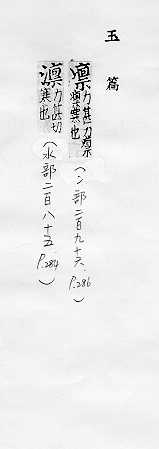 玉篇
凛力甚力禀二切寒也（冫部二百九十六 P.286）
凜力甚切寒也（水部二百八十五 P.284）